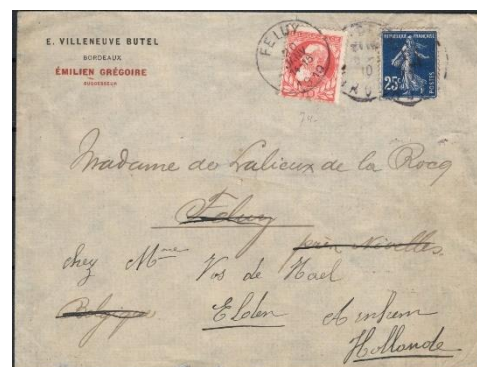 E. VILLENEUVE BUTEL
BORDEAUX
ÉMILIEN GRÉGOIRE
SUCCESSEUR
FELUY
RÉPUBLIQUE FRANÇAISE
25c
POSTES
Madame de Lalieux de la Rocq
Feluy
près Nivelles
chez Mme Vos de Wael
Belgique
Elden Arnhem
Hollande